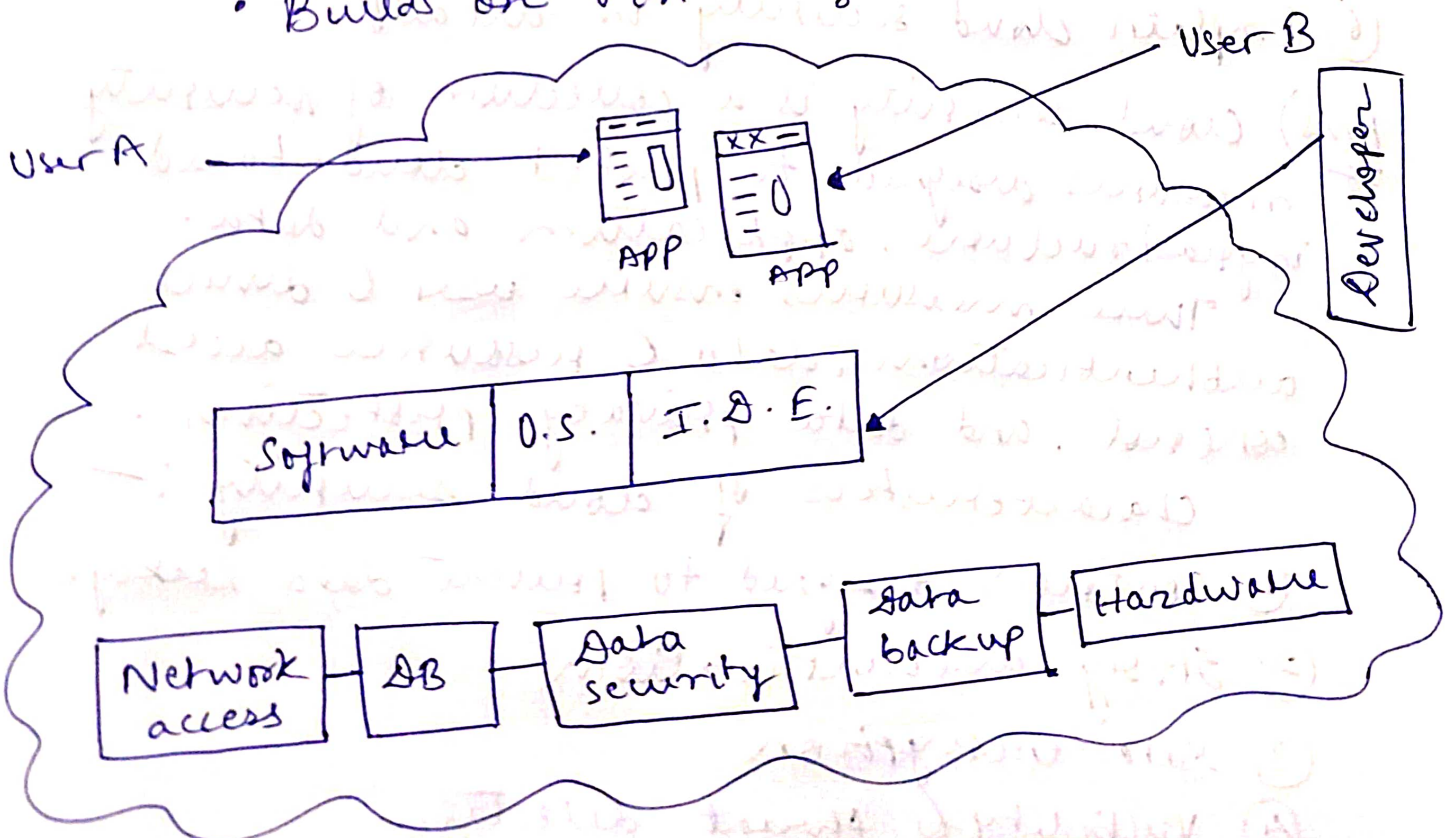 • Builds on
User B
User A
Developer
-- --
XX --
APP
APP
Software
O.S.
I.D.E.
Network
access
DB
Data
security
Data
backup
Hardware